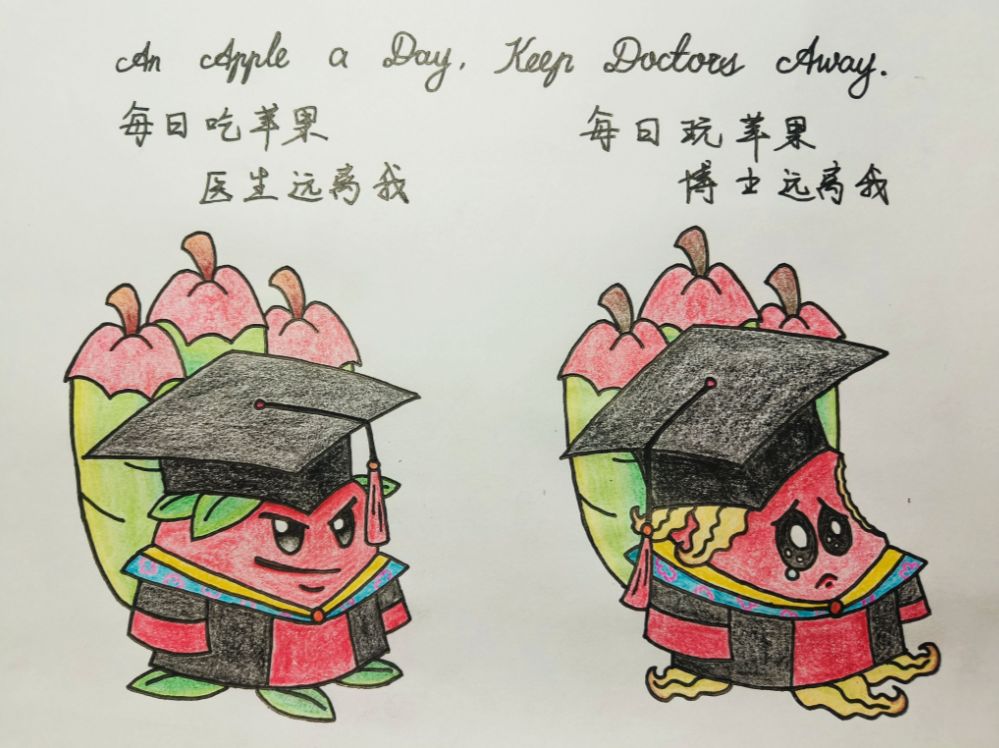 An Apple a Day, Keep Doctors Away.
每日吃苹果
医生远离我
每日玩苹果
博士远离我